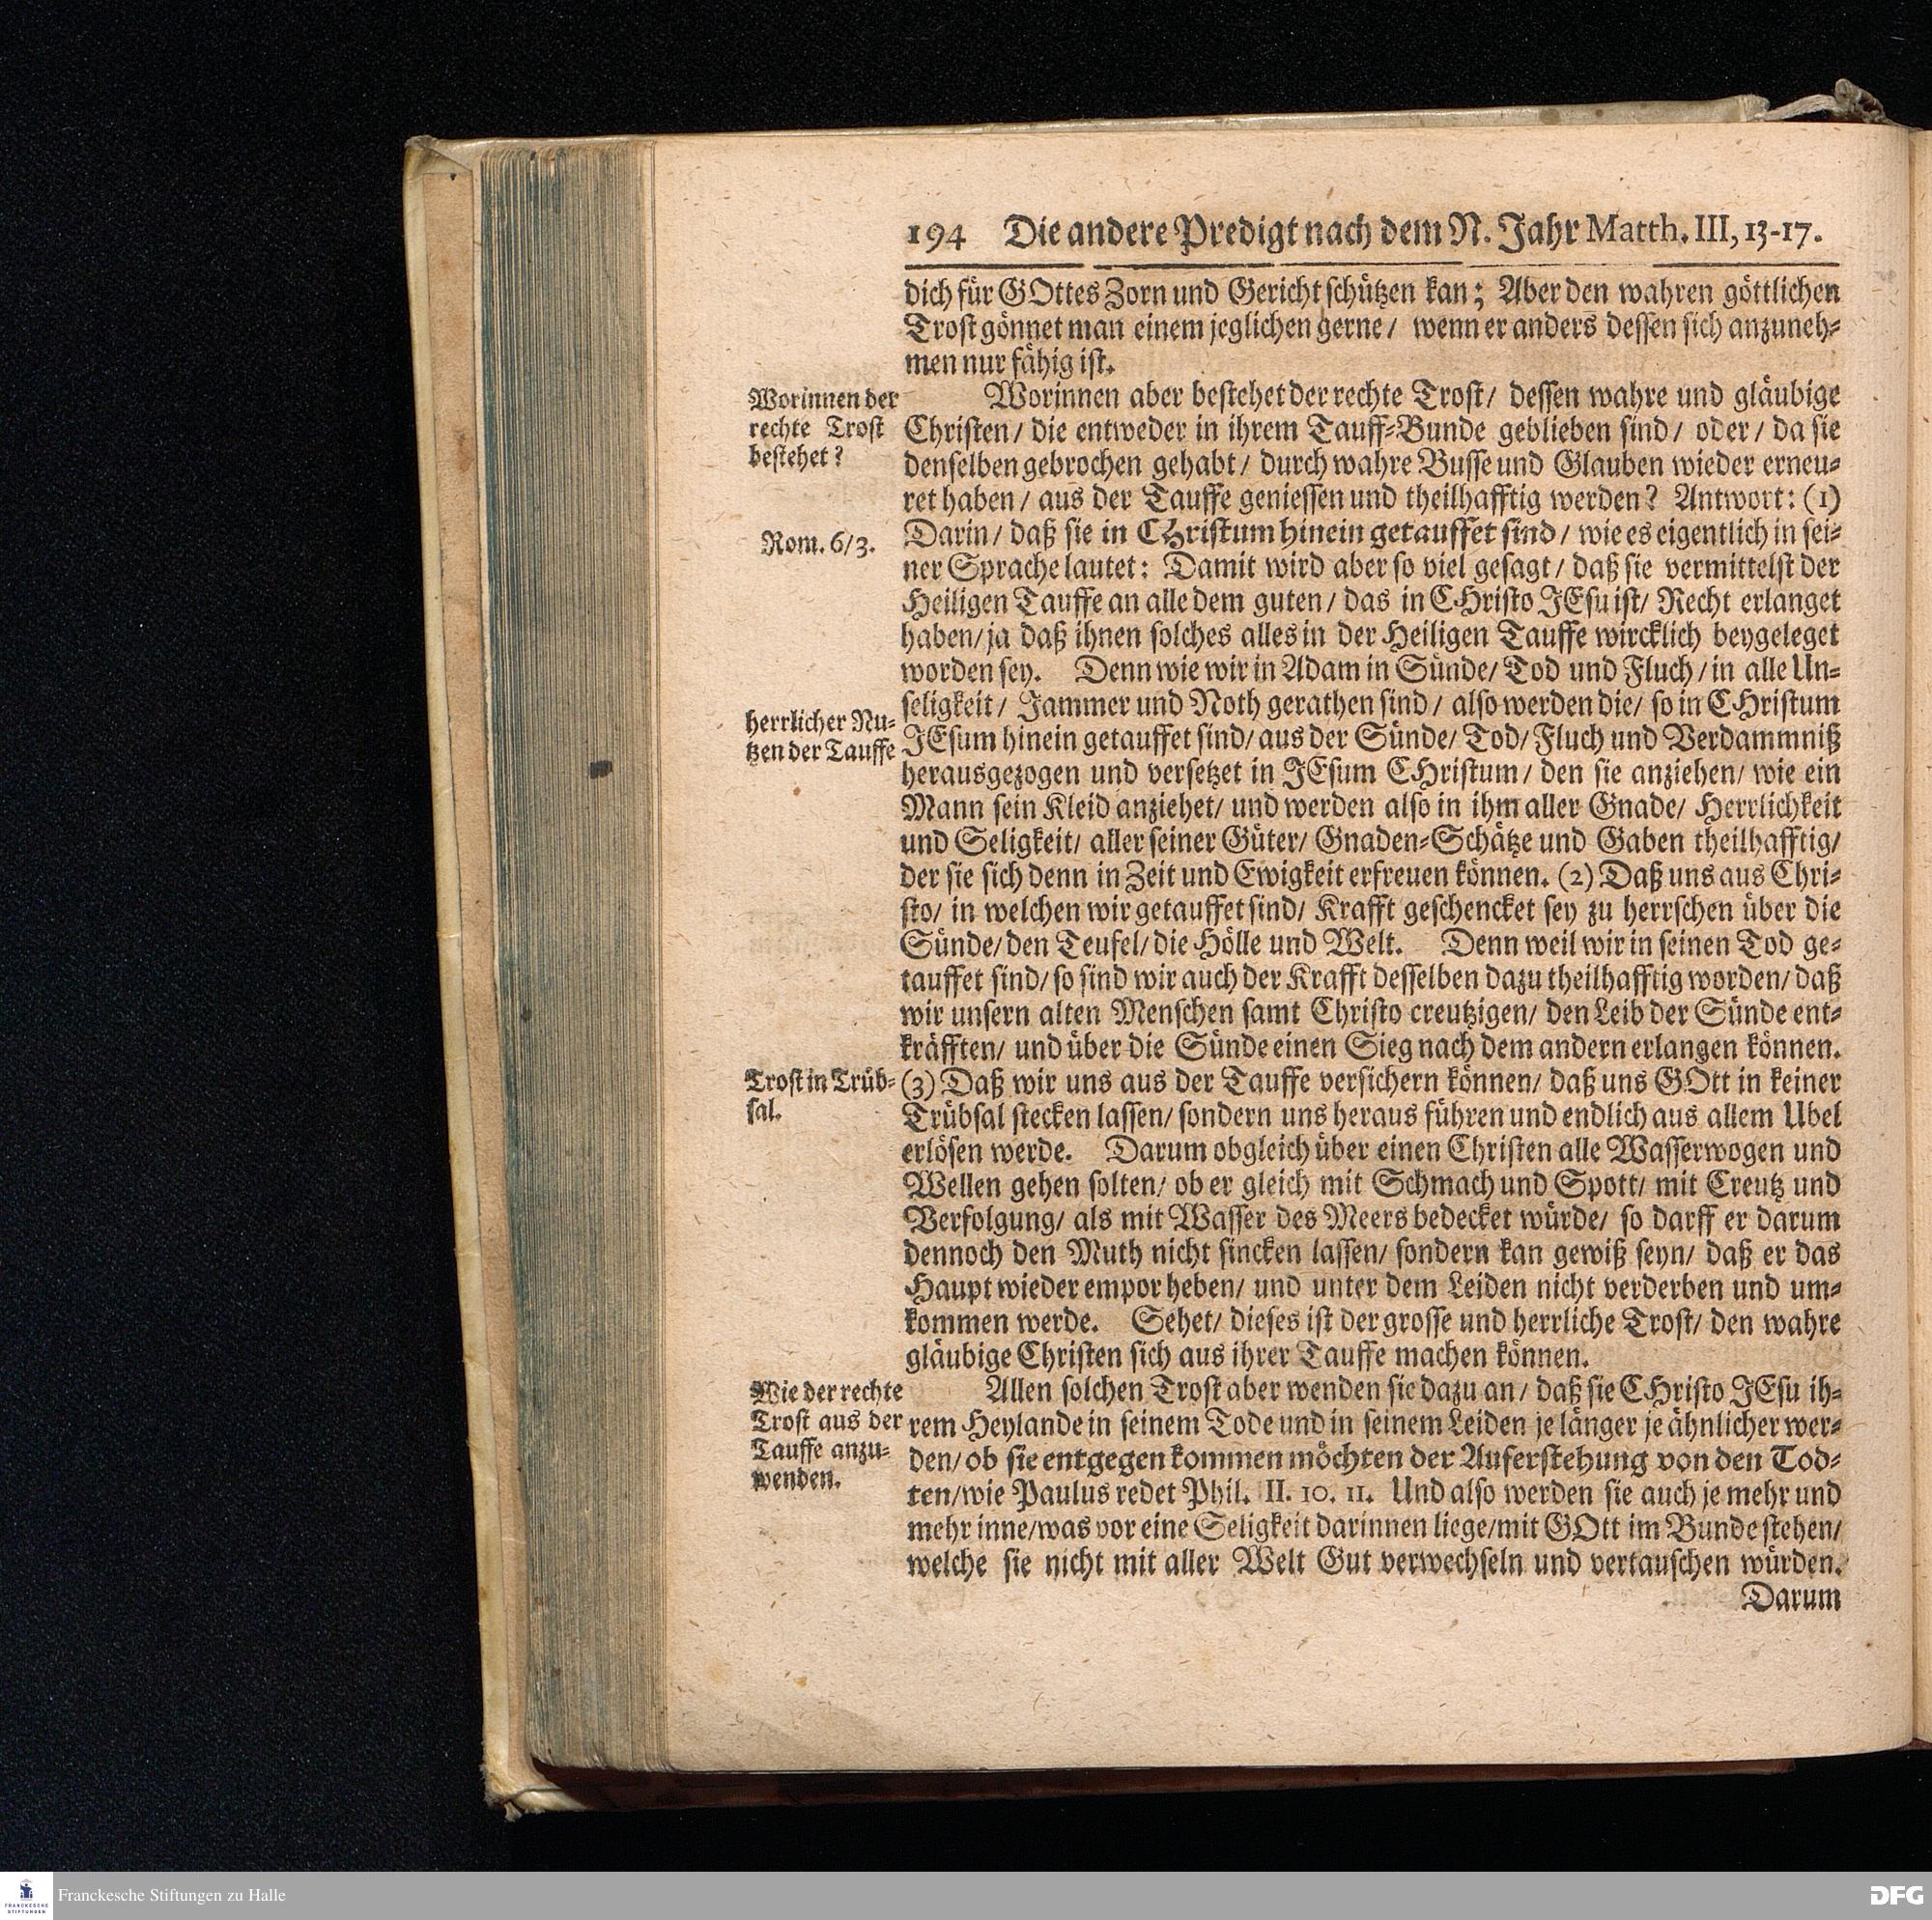 194 Die andere Predigt nach dem N. Jahr Matth. III, 13-17.
dich für GOttes Zorn und Gericht schützen kan; Aber den wahren göttlichen
Trost gönnet man einem jeglichen gerne/ wenn er anders dessen sich anzuneh-
men nur fähig ist.
Worinnen der
rechte Trost
bestehet?
Worinnen aber bestehet der rechte Trost/ dessen wahre und gläubige
Christen/ die entweder in ihrem Tauff-Bunde geblieben sind/ oder/ da sie
denselben gebrochen gehabt/ durch wahre Busse und Glauben wieder erneu-
ret haben/ aus der Tauffe geniessen und theilhafftig werden? Antwort: (1)
Rom. 6/3.
Darin/ daß sie in CHristum hinein getauffet sind/ wie es eigentlich in sei-
ner Sprache lautet: Damit wird aber so viel gesagt/ daß sie vermittelst der
Heiligen Tauffe an alle dem guten/ das in CHristo JEsu ist/ Recht erlanget
haben/ ja daß ihnen solches alles in der Heiligen Tauffe wircklich beygeleget
worden sey. Denn wie wir in Adam in Sünde/ Tod und Fluch/ in alle Un-
seligkeit/ Jammer und Noth gerathen sind/ also werden die/ so in CHristum
herrlicher Nu-
tzen der Tauffe
JEsum hinein getauffet sind/ aus der Sünde/ Tod/ Fluch und Verdammniß
herausgezogen und versetzet in JEsum CHristum/ den sie anziehen/ wie ein
Mann sein Kleid anziehet/ und werden also in ihm aller Gnade/ Herrlichkeit
und Seligkeit/ aller seiner Güter/ Gnaden-Schätze und Gaben theilhafftig/
der sie sich denn in Zeit und Ewigkeit erfreuen können. (2) Daß uns aus Chri-
sto/ in welchen wir getauffet sind/ Krafft geschencket sey zu herrschen über die
Sünde/ den Teufel/ die Hölle und Welt. Denn weil wir in seinen Tod ge-
tauffet sind/ so sind wir auch der Krafft desselben dazu theilhafftig worden/ daß
wir unsern alten Menschen samt Christo creutzigen/ den Leib der Sünde ent-
kräfften/ und über die Sünde einen Sieg nach dem andern erlangen können.
Trost in Trüb-
sal.
(3) Daß wir uns aus der Tauffe versichern können/ daß uns GOtt in keiner
Trübsal stecken lassen/ sondern uns heraus führen und endlich aus allem Ubel
erlösen werde. Darum obgleich über einen Christen alle Wasserwogen und
Wellen gehen solten/ ob er gleich mit Schmach und Spott/ mit Creutz und
Verfolgung/ als mit Wasser des Meers bedecket würde/ so darff er darum
dennoch den Muth nicht sincken lassen/ sondern kan gewiß seyn/ daß er das
Haupt wieder empor heben/ und unter dem Leiden nicht verderben und um-
kommen werde. Sehet/ dieses ist der grosse und herrliche Trost/ den wahre
gläubige Christen sich aus ihrer Tauffe machen können.
Wie der rechte
Trost aus der
Tauffe anzu-
wenden.
Allen solchen Trost aber wenden sie dazu an/ daß sie CHristo JEsu ih-
rem Heylande in seinem Tode und in seinem Leiden je länger je ähnlicher wer-
den/ ob sie entgegen kommen möchten der Auferstehung von den Tod-
ten/ wie Paulus redet Phil. II. 10. 11. Und also werden sie auch je mehr und
mehr inne/ was vor eine Seligkeit darinnen liege/ mit GOtt im Bunde stehen/
welche sie nicht mit aller Welt Gut verwechseln und vertauschen würden.
Darum
FRANCKESCHE
STIFTUNGEN
Franckesche Stiftungen zu Halle
DFG